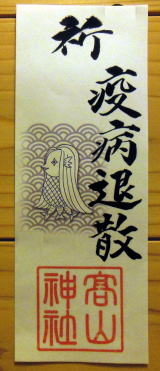 祈
疫病退散
髙山
神社